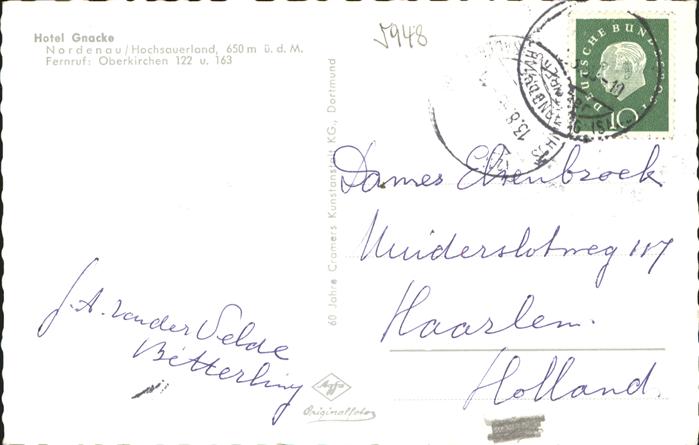 Hotel Gnacke
Nordenau/Hochsauerland, 650 m ü. d. M.
Fernruf: Oberkirchen 122 u. 163
5948
DEUTSCHE BUNDESPOST
10
13.8
60 Jahre Cramers Kunstanstalt KG., Dortmund
Dames Elzenbroek
Muiderslotweg 117
Haarlem.
Holland.
J. A. van der Velde
Betterling
Agfa
Originalfoto